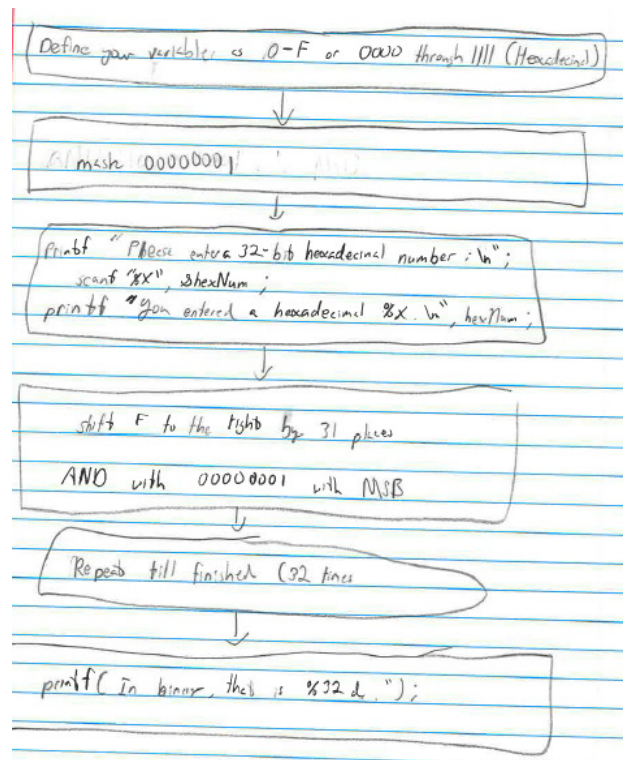 Define your variables as 0-F or 0000 through 1111 (Hexadecimal)
mask 00000001
printf " Please enter a 32-bit hexadecimal number : \n";
scanf "%X", &hexNum ;
printf "You entered a hexadecimal %X. \n", hexNum ;
shift F to the right by 31 places
AND with 00000001 with MSB
Repeat till finished (32 times
printf( In binary, that is %32 d. ");